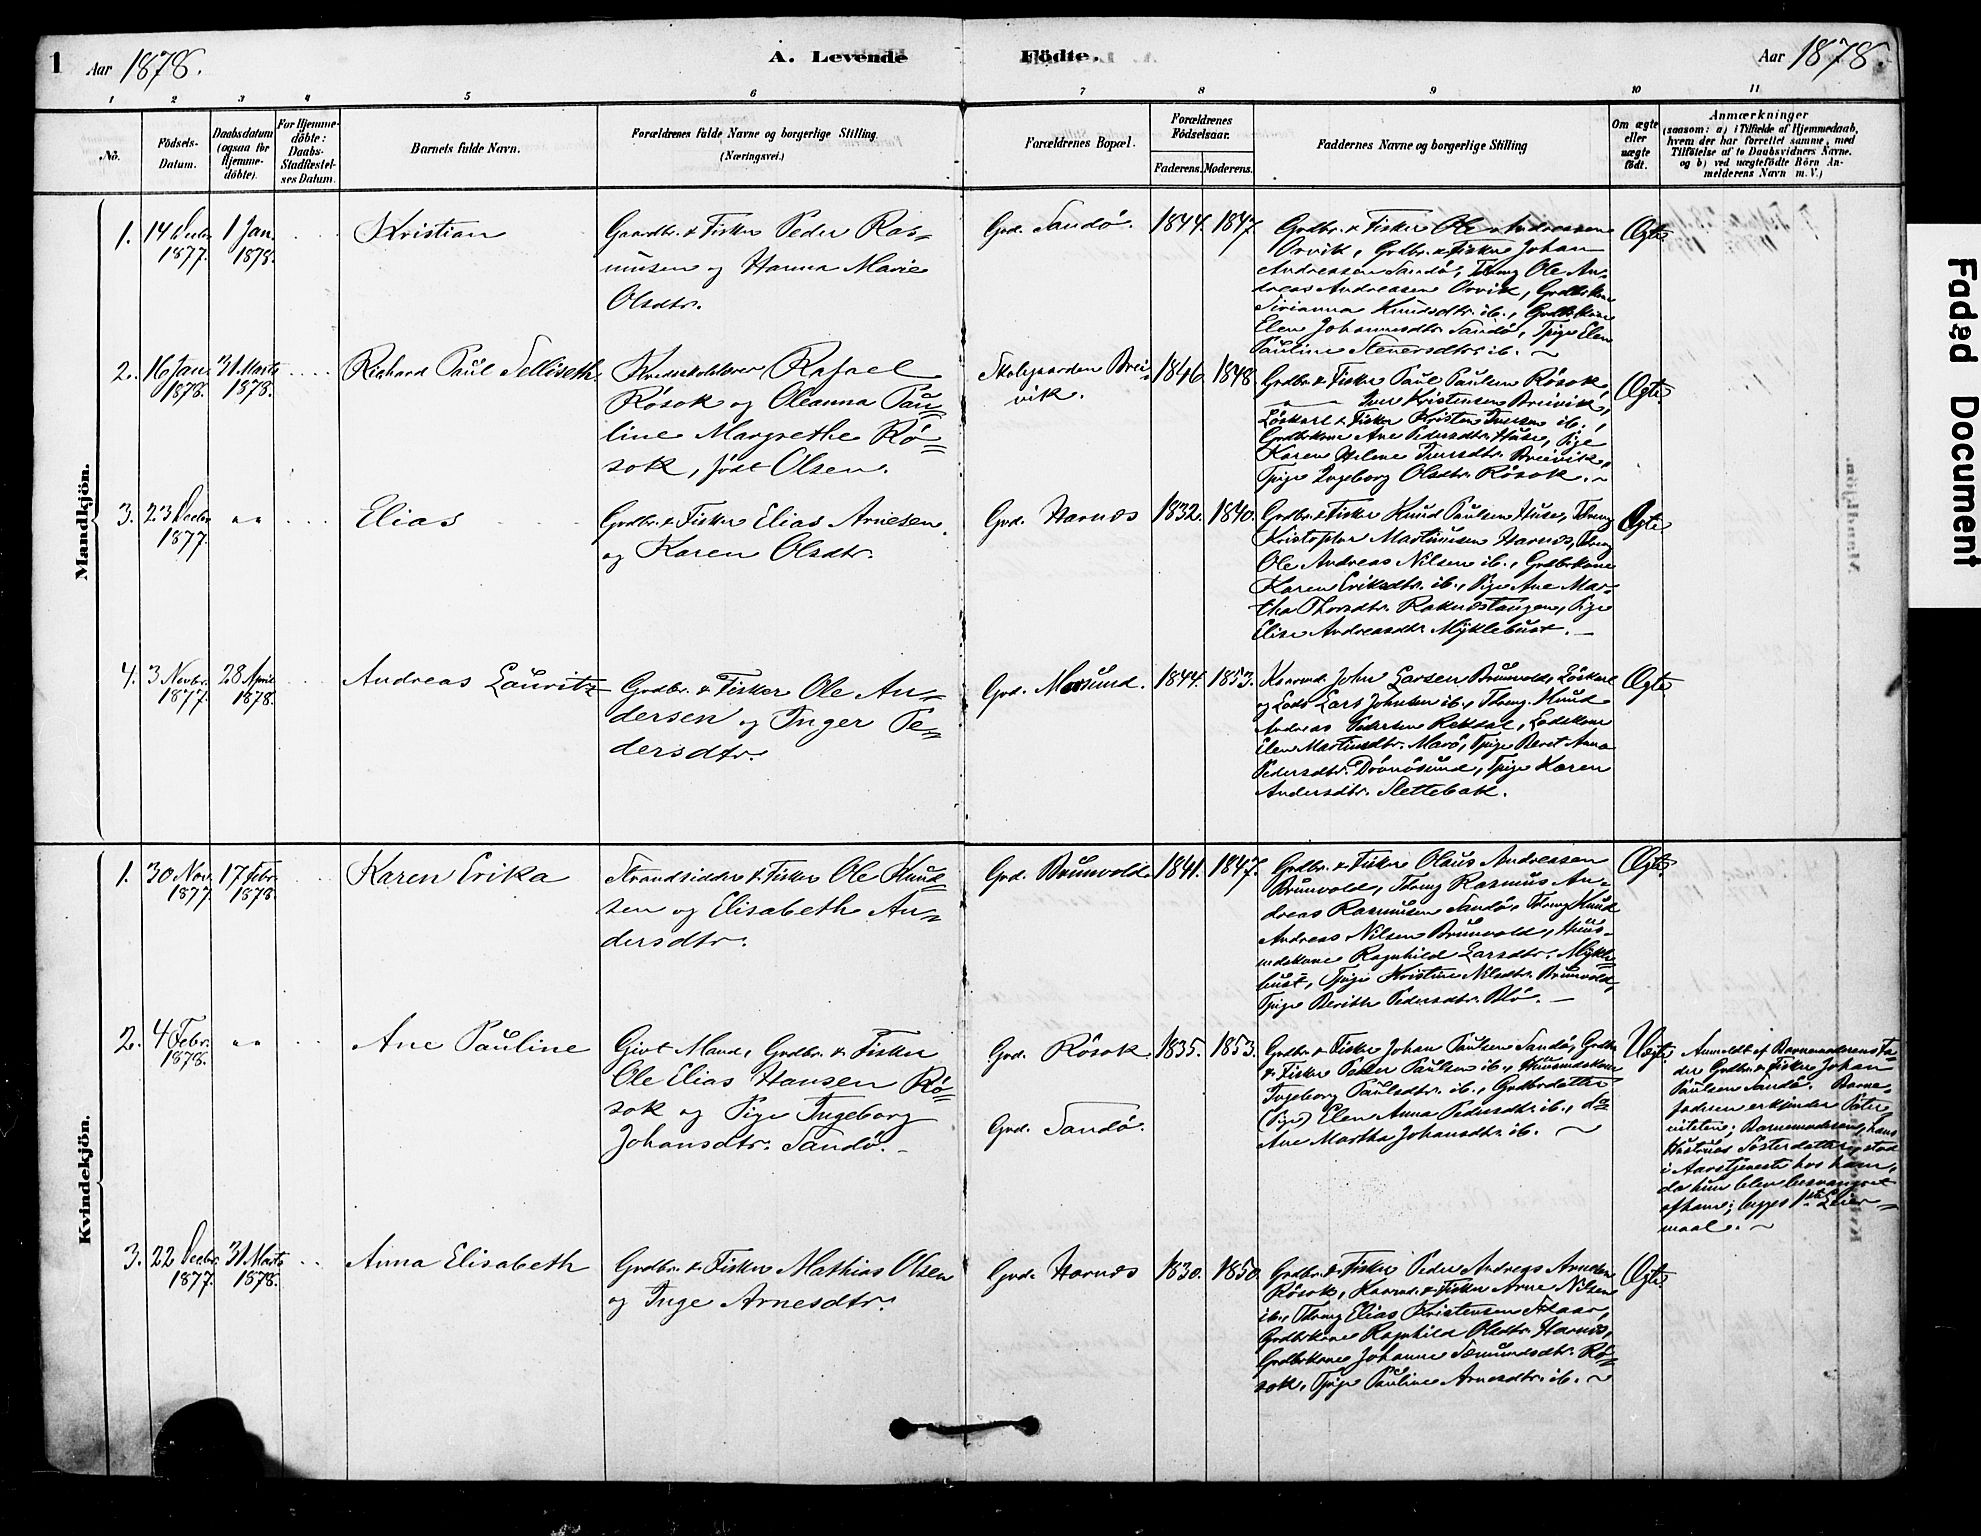 1 Aar 1878. A. Levende Födte. Aar 1878.
1 2 3 4 5 6 7 8 9 10 11
No.
Födsels-
Datum.
Daabsdatum
(ogsaa for
Hjemme-
döbte).
For Hjemme-
döbte:
Daabs-
Stadfæstel-
ses Datum.
Barnets fulde Navn.
Forældrenes fulde Navne og borgerlige Stilling
(Næringsvei.)
Forældrenes Bopæl.
Forældrenes
Födselsaar.
Faderens. Moderens.
Faddernes Navne og borgerlige Stilling
Om ægte
eller
uægte
födt.
Anmærkninger
(saasom: a) i Tilfælde af Hjemmedaab,
hvem der har forrettet samme, med
Tilföielse af to Daabsvidners Navne.
og b) ved uægtefödte Börn An-
melderens Navn m. V.)
Mandkjön.
1.
14 Decbr.
1877.
1 Jan.
1878.
Kristian
Gaardbr. & Fisker Peder Ras-
musen og Hanna Marie
Olsdtr.
Grd. Sandö.
1844. 1847.
Grdbr. & Fisker Ole Andreasen
Orvik, Grdbr. & Fisker Johan
Andreasen Sandö, Tdreng Ole An-
dreas Andreasen Orvik, Grdbrkone
Sirianna Knudsdtr. ib., Grdbrkone
Elen Johannesdtr. Sandö, Tpige Elen
Pauline Stenersdtr. ib.
Ægte
2.
16 Jan.
1878.
31 Marts
1878.
Richard Paul Selliseth
Kredsskolelærer Rafael
Rösok og Oleanna Pau-
line Margrethe Rö-
sok, födt Olsen.
Skolegaarden Brei-
vik.
1846. 1848.
Grdbr. & Fisker Paul Paulsen Rösok,
Iver Kristensen Breivik,
Löskarl & Fisker Kristen Iversen ib.,
Grdbrkone Ane Pedersdtr. Huse, Pige
Karen Helene Iversdtr. Breivik,
Tpige Ingeborg Olsdtr. Rösok.
Ægte.
3.
23 Decbr.
1877.
" "
Elias
Grdbr. & Fisker Elias Arnesen
og Karen Olsdtr.
Grd. Harnæs
1832. 1840.
Grdbr. & Fisker Knud Paulsen Huse, Tdreng
Kristopher Martinusen Harnæs, Tdreng
Ole Andreas Nilsen ib., Grdbrkone
Karen Eriksdtr. ib., Pige Ane Mar-
tha Thorsdtr. Raknestangen, Pige
Elise Andreasdtr. Myklebust.
Ægte
4.
3 Novbr.
1877.
28 April
1878.
Andreas Lauritz
Grdbr. & Fisker Ole An-
dersen og Inger Pe-
dersdtr.
Grd. Morsund.
1844. 1853.
Kaarmd. John Larsen Brunvold, Löskarl
og Lods Lars Johnsen ib., Tdreng Knud
Andreas Pedersen Rekdal, Lodskone
Elen Martinsdtr. Marö, Tpige Beret Anna
Pedersdtr. Drönösund, Tpige Karen
Andersdtr. Slettebak.
Ægte
Kvindekjön.
1.
30 Nov.
1877.
17 Febr.
1878.
Karen Erika
Strandsidder & Fisker Ole Knud-
sen og Elisabeth An-
dersdtr.
Grd. Brunvold.
1841. 1847.
Grdbr. & Fisker Olaus Andreasen
Brunvold, Tdreng Rasmus An-
dreas Rasmusen Sandö, Tdreng Knud
Andreas Nilsen Brunvold, Huus-
mdskone Ragnhild Larsdtr. Mykle-
bust, Tpige Kristine Nilsdtr. Brunvold,
Tpige Berith Pedersdtr. Blö.
Ægte.
2.
4 Febr.
1878.
" "
Ane Pauline
Givt Mand, Grdbr. & Fisker
Ole Elias Hansen Rö-
sok og Pige Ingeborg
Johansdtr. Sandö.
Grd. Rösok
Grd. Sandö.
1835. 1853.
Grdbr. & Fisker Johan Paulsen Sandö, Grdbr.
& Fisker Peder Paulsen ib., Huusmdskone
Ingeborg Paulsdtr. ib., Grdbrdatter
(Pige) Elen Anna Pedersdtr. ib., do
Ane Martha Johansdtr. ib.
Uægte.
Anmeldt af Barnemoderens Fa-
der Grdbr. & Fisker Johan
Paulsen Sandö. Barne-
faderen erkjender Pater-
niteten; Barnemoderen, hans
Hustrues Sösterdatter, stod
i Aarstjeneste hos ham,
da hun blev besvangret
af ham; begges 1ste Leier-
maal.
3.
22 Decbr.
1877.
31 Marts
1878.
Anna Elisabeth
Grdbr. & Fisker Mathias Olsen
og Inge Arnesdtr.
Grd. Harnæs
1830. 1850.
Grdbr. & Fisker Peder Andreas Arnesen
Rösok, Kaarmd. & Fisker Arne Nilsen
ib., Tdreng Elias Kristensen Alaar,
Grdbrkone Ragnhild Olsdtr. Harnæs,
Grdbrkone Johanne Sæmundsdtr. Rö-
sok, Tpige Pauline Arnesdtr. ib.
Ægte.
Faded Document